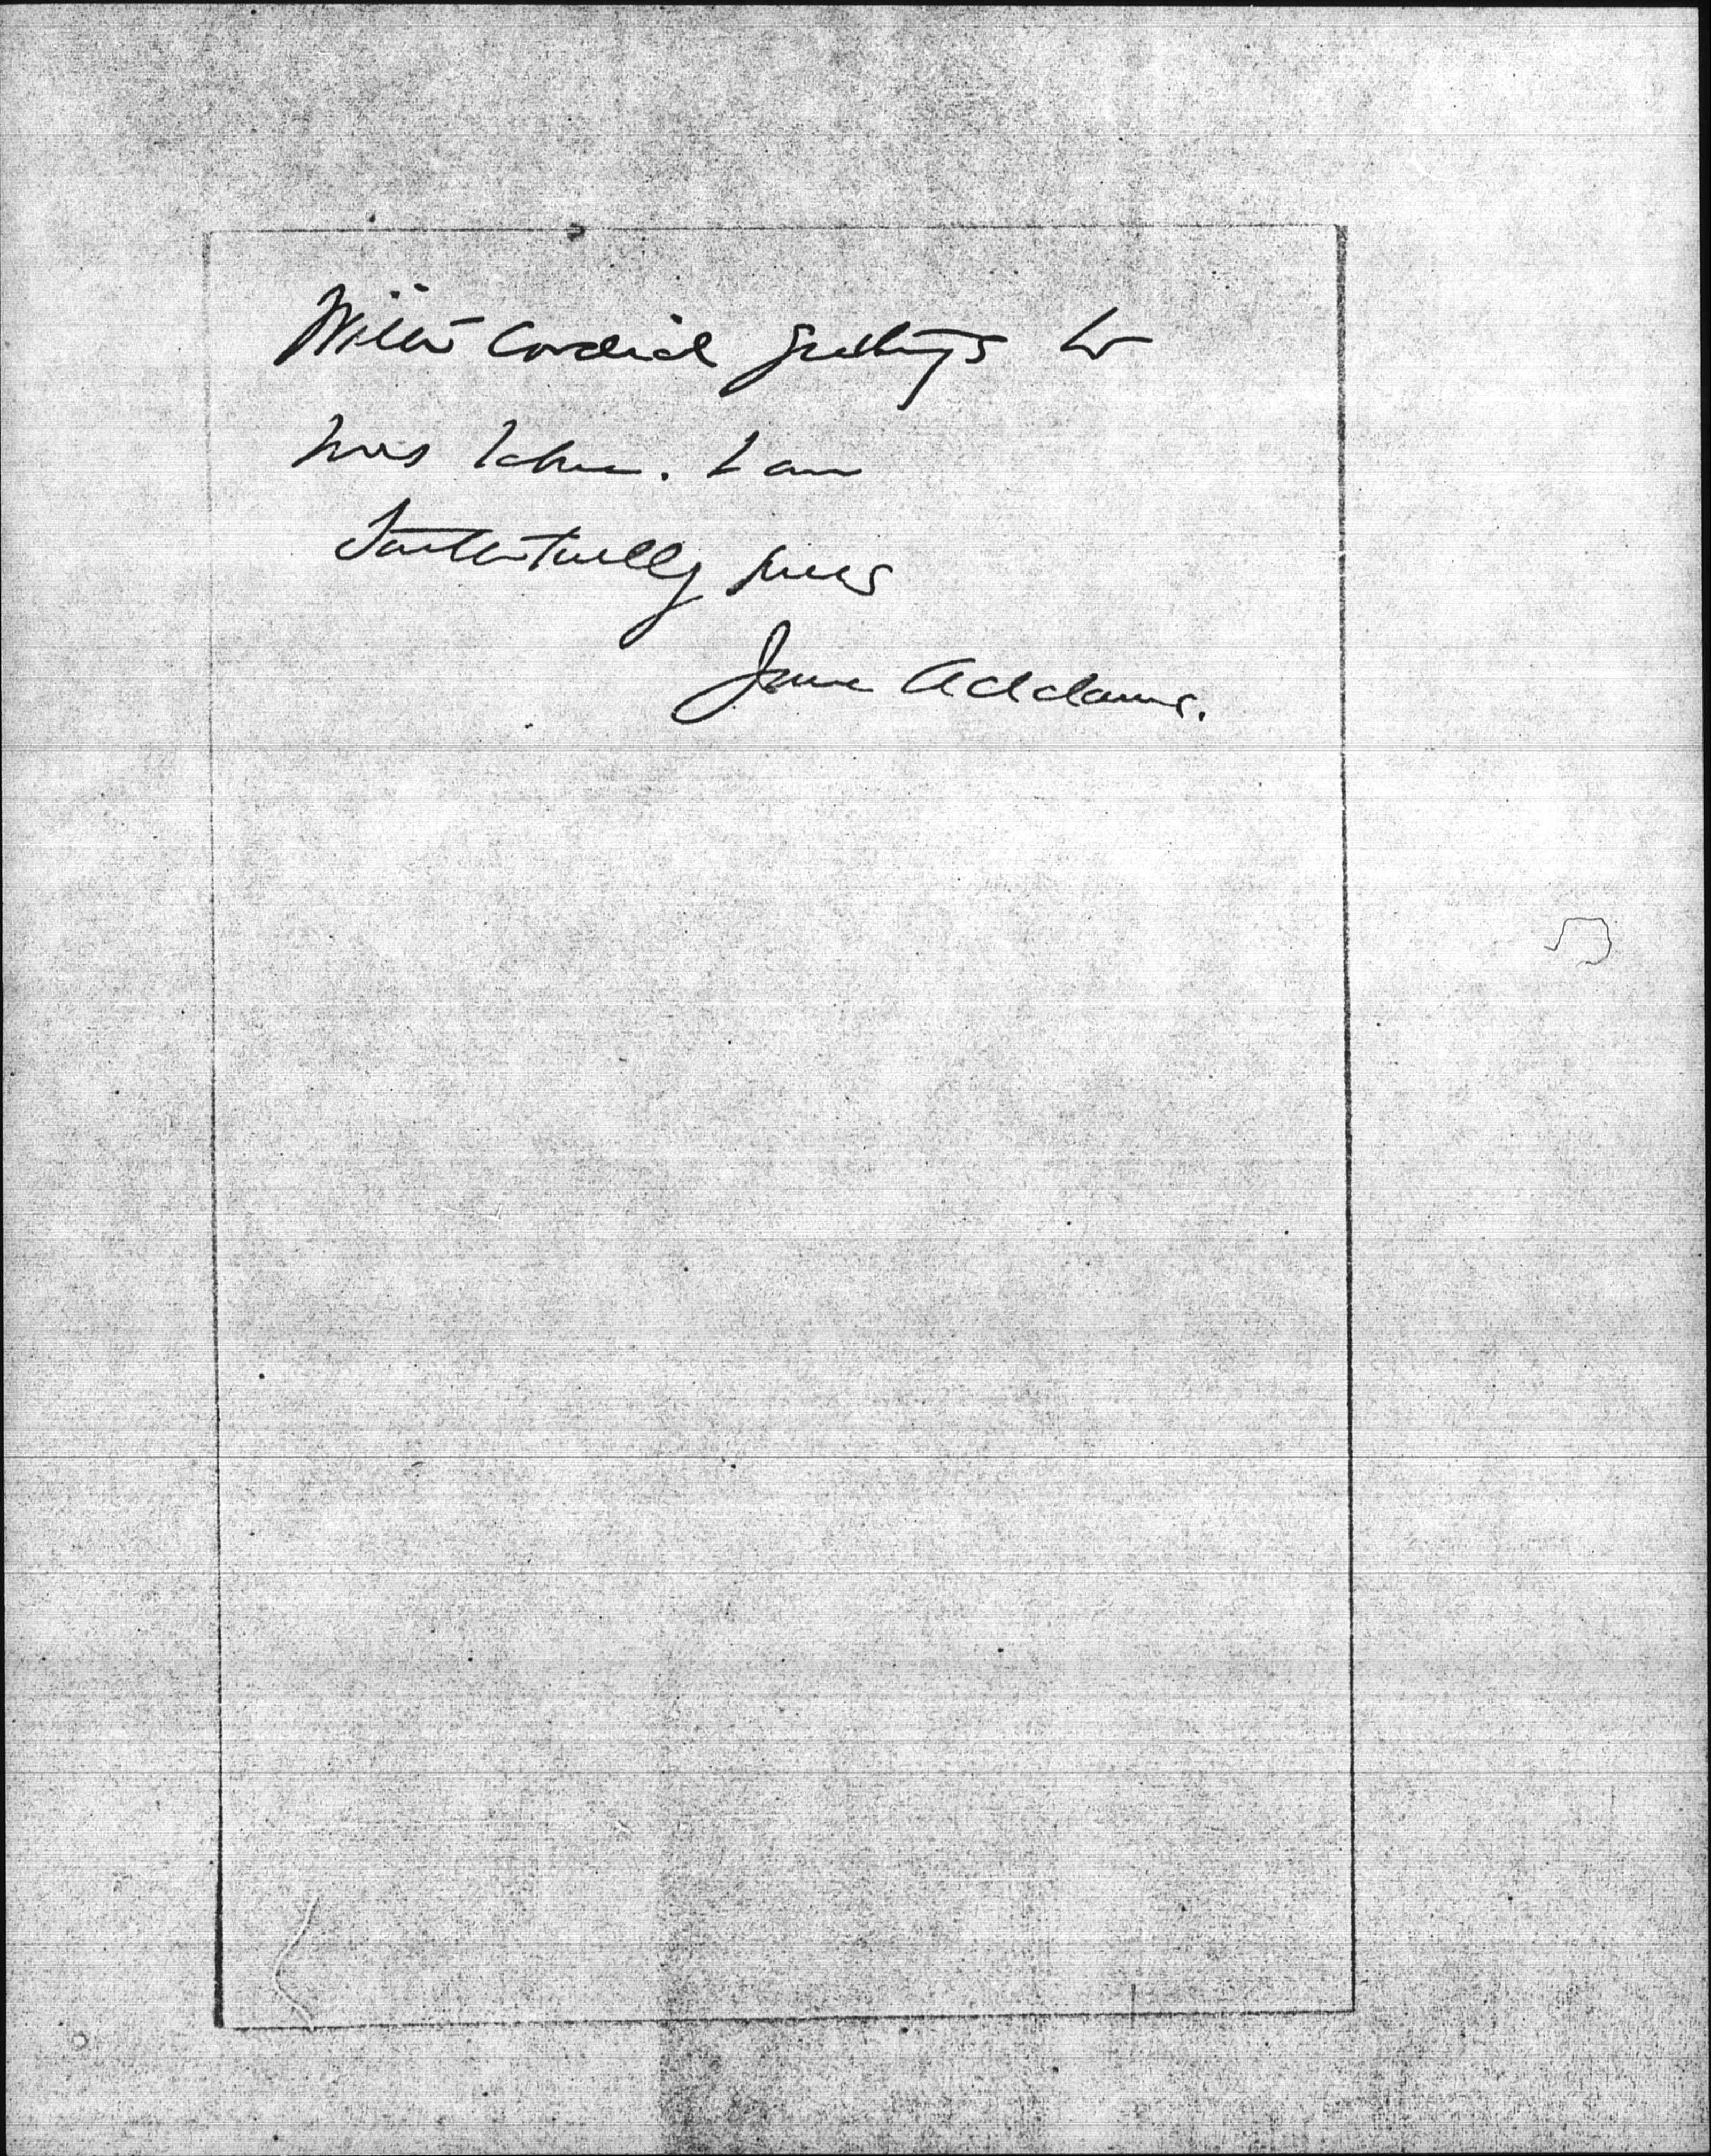 With cordial greetings to
Mrs I am
Faithfully yours
Jane Addams.